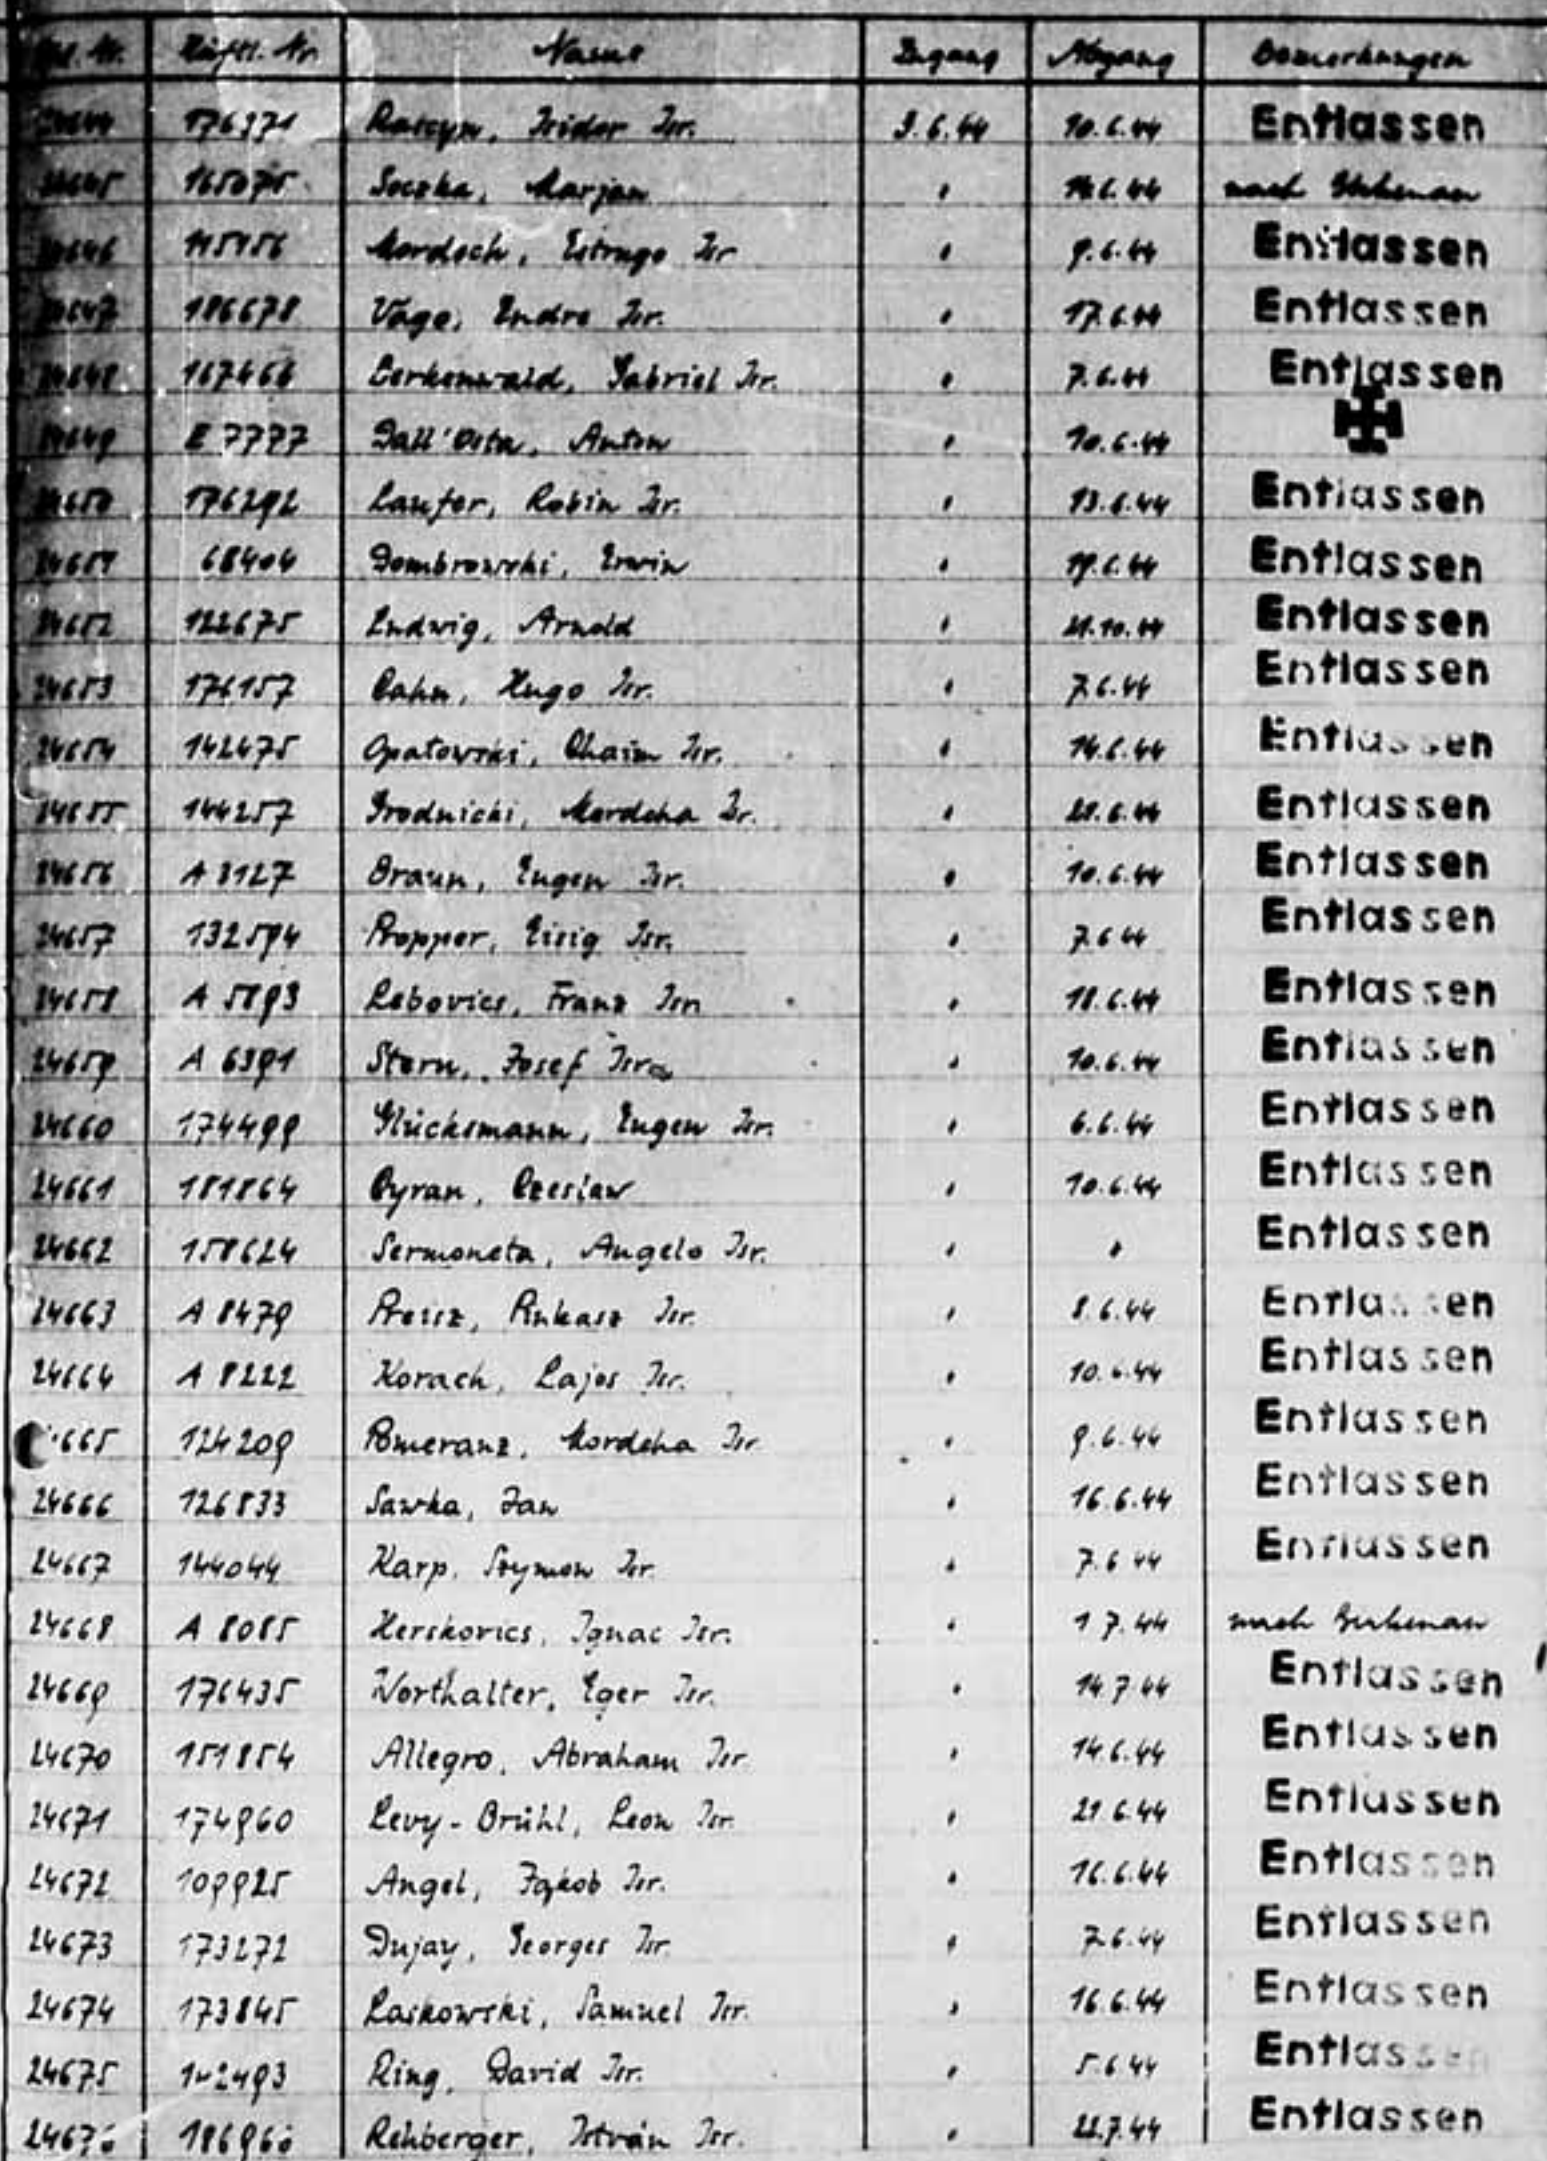 Lfd. Nr. Häftl. Nr. Name Zugang Abgang Bemerkungen
24644 176371 Isidor Isr. 3.6.44 10.6.44 Entlassen
24645 165075 Soczka, Marjan " 14.6.44 nach Birkenau
24646 115156 Mordoch, Estrugo Isr " 9.6.44 Entlassen
24647 186678 Vago, Endre Isr. " 17.6.44 Entlassen
24648 167466 Lerkenwald, Gabriel Isr. " 7.6.44 Entlassen
24649 E 7777 Dall'Osta, Anton " 10.6.44
24650 176292 Laufer, Robin Isr. " 13.6.44 Entlassen
24651 68404 Dombrowski, Erwin " 19.6.44 Entlassen
24652 122675 Ludwig, Arnold " 21.10.44 Entlassen
24653 176157 Cahn, Hugo Isr. " 7.6.44 Entlassen
24654 142475 Opatowski, Chaim Isr. " 14.6.44 Entlassen
24655 144257 Grodnicki, Mordcha Isr. " 21.6.44 Entlassen
24656 A 3127 Braun, Eugen Isr. " 10.6.44 Entlassen
24657 132594 Propper, Eisig Isr. " 7.6.44 Entlassen
24658 A 5893 Lebovics, Franz Isr. " 18.6.44 Entlassen
24659 A 6391 Stern, Josef Isr. " 10.6.44 Entlassen
24660 174499 Glücksmann, Eugen Isr. " 6.6.44 Entlassen
24661 181864 Cyran, Czeslaw " 10.6.44 Entlassen
24662 158624 Sermoneta, Angelo Isr. " " Entlassen
24663 A 8479 Preisz, Isr. " 8.6.44 Entlassen
24664 A 8222 Korach, Lajos Isr. " 10.6.44 Entlassen
24665 124209 Pomeranz, Mordcha Isr " 9.6.44 Entlassen
24666 126833 Sawka, Jan " 16.6.44 Entlassen
24667 144044 Karp, Szymon Isr. " 7.6.44 Entlassen
24668 A 8085 Herskovics, Ignac Isr. " 1.7.44 nach Birkenau
24669 176435 Worthalter, Eger Isr. " 14.7.44 Entlassen
24670 151854 Allegro, Abraham Isr. " 14.6.44 Entlassen
24671 174960 Levy-Brühl, Leon Isr. " 21.6.44 Entlassen
24672 109925 Angel, Jakob Isr. " 16.6.44 Entlassen
24673 173272 Dujay, Georges Isr. " 7.6.44 Entlassen
24674 173845 Laskowski, Samuel Isr. " 16.6.44 Entlassen
24675 142493 Ring, David Isr. " 5.6.44 Entlassen
24676 186960 Rehberger, István Isr. " 22.7.44 Entlassen